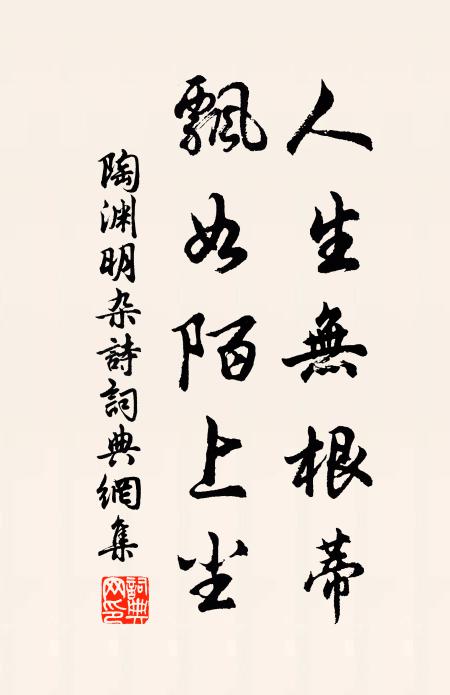 人生無根蒂
飄如陌上尘
陶渊明杂詩詞典網集
詞典网印